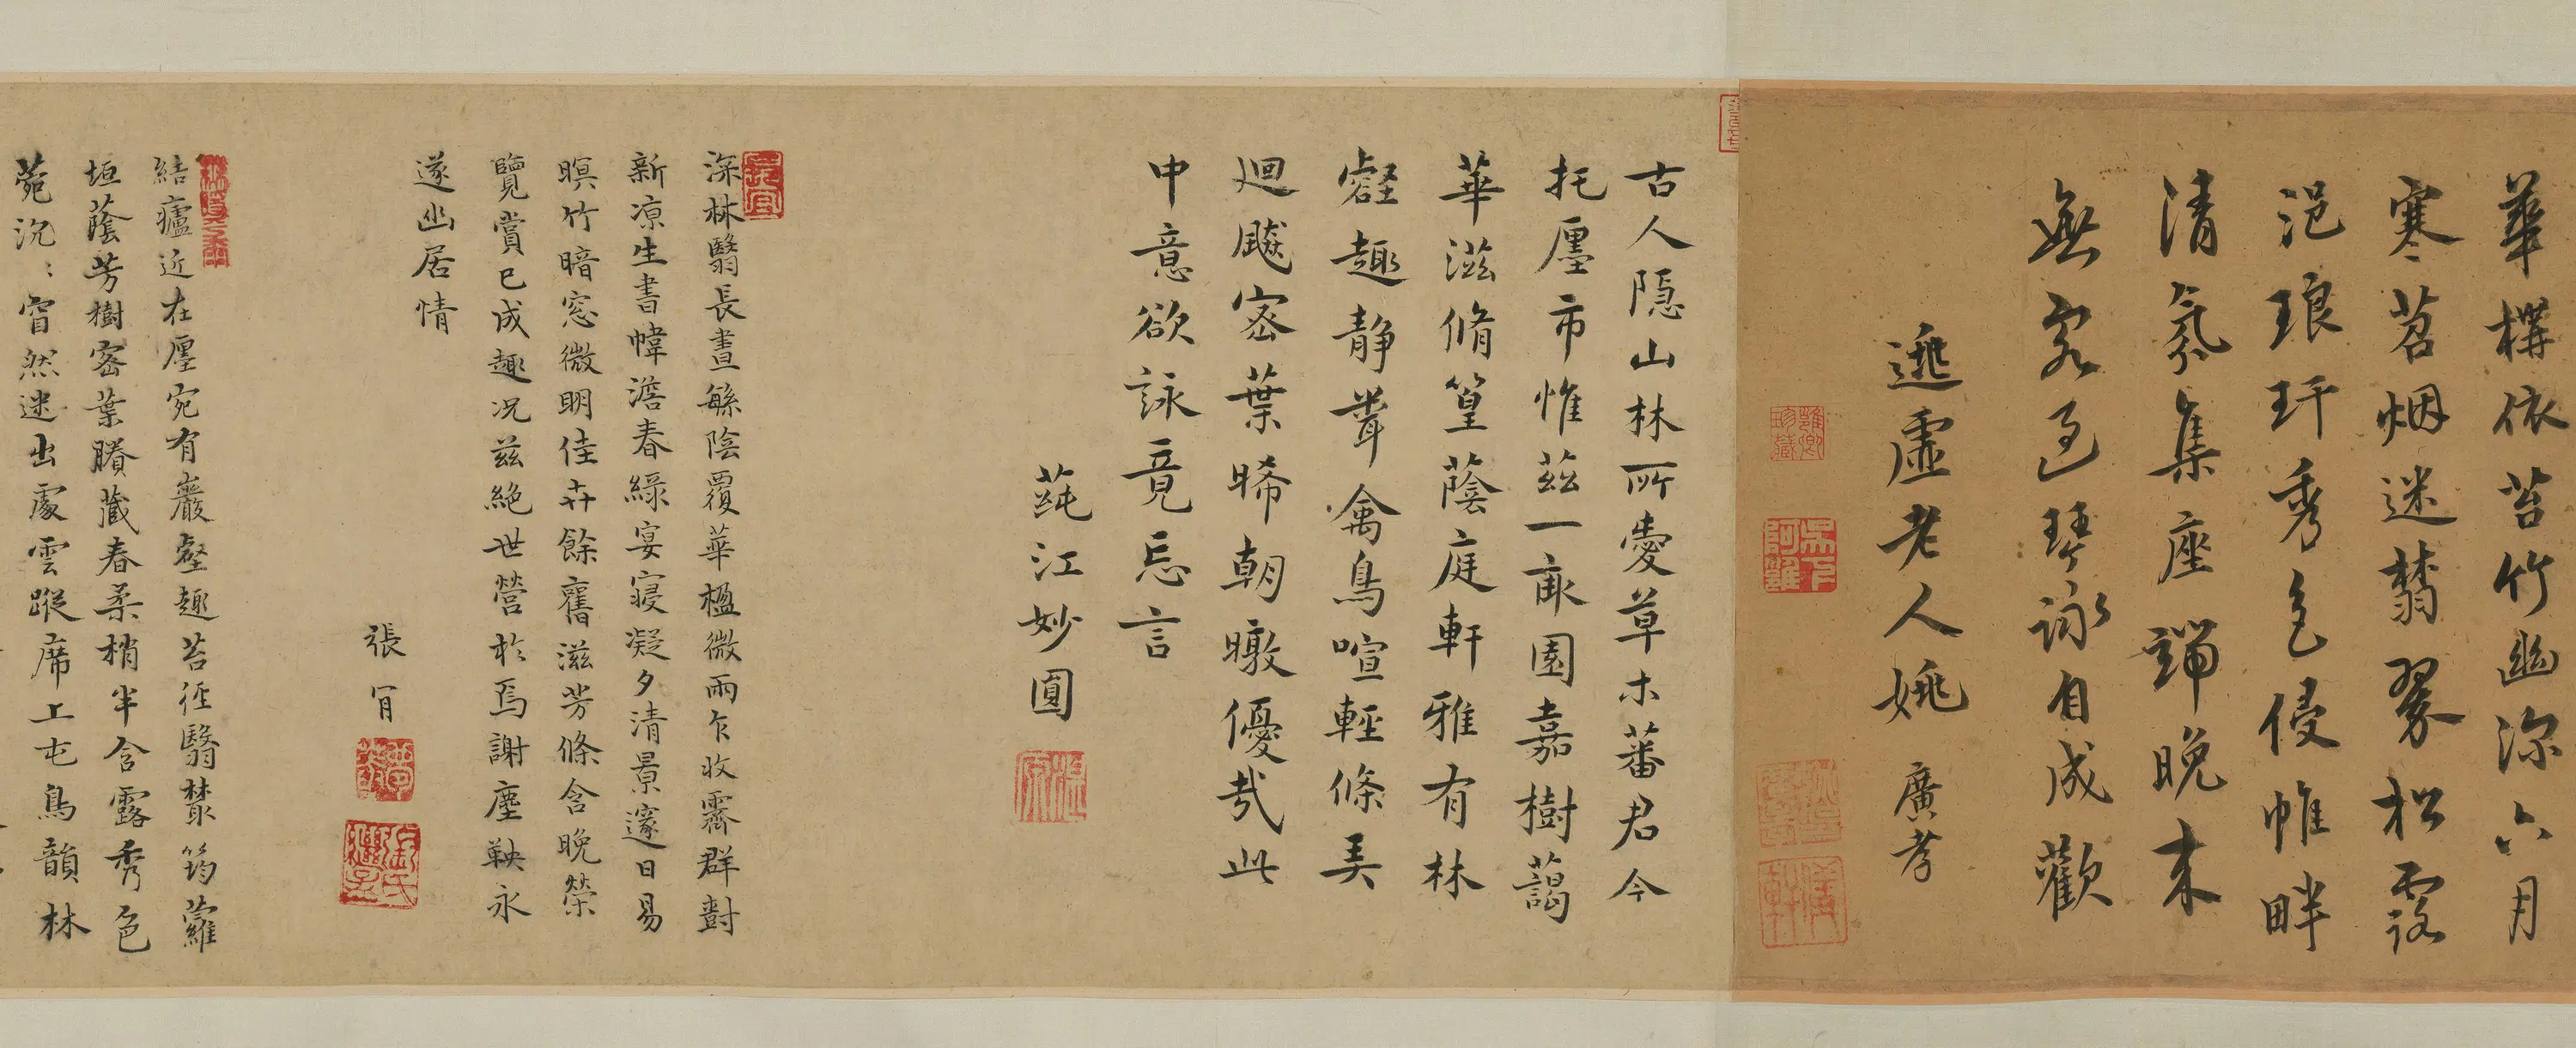 華構依苔竹幽深六月
寒苕烟迷翡翠松露
浥琅玕秀色侵帷畔
清氛集座端晚來
無客過琴詠自成歡
逃虛老人姚廣孝
古人隱山林所愛草木蕃君今
托廛市惟茲一畝園嘉樹藹
華滋脩篁蔭庭軒雅有林
壑趣靜聾禽鳥喧輕條美
迴飈密葉晞朝暾優哉此
中意欲詠竟忘言
蒓江妙圓
深林翳長晝繇陰覆華楹微雨乍收霽群對
新凉生書幃澹春綠宴寢凝夕清景邃日易
暝竹暗窓微明佳卉餘舊滋芳條含晚榮
覽賞已成趣况茲絕世營於焉謝塵鞅永
遂幽居情
張肎
結廬近在廛宛有巖壑趣苔徑翳叢筠蘿
垣蔭芳樹密葉賸藏春柔梢半含露秀色
菀沉〻窅然迷出處雲蹤席上屯鳥韻林